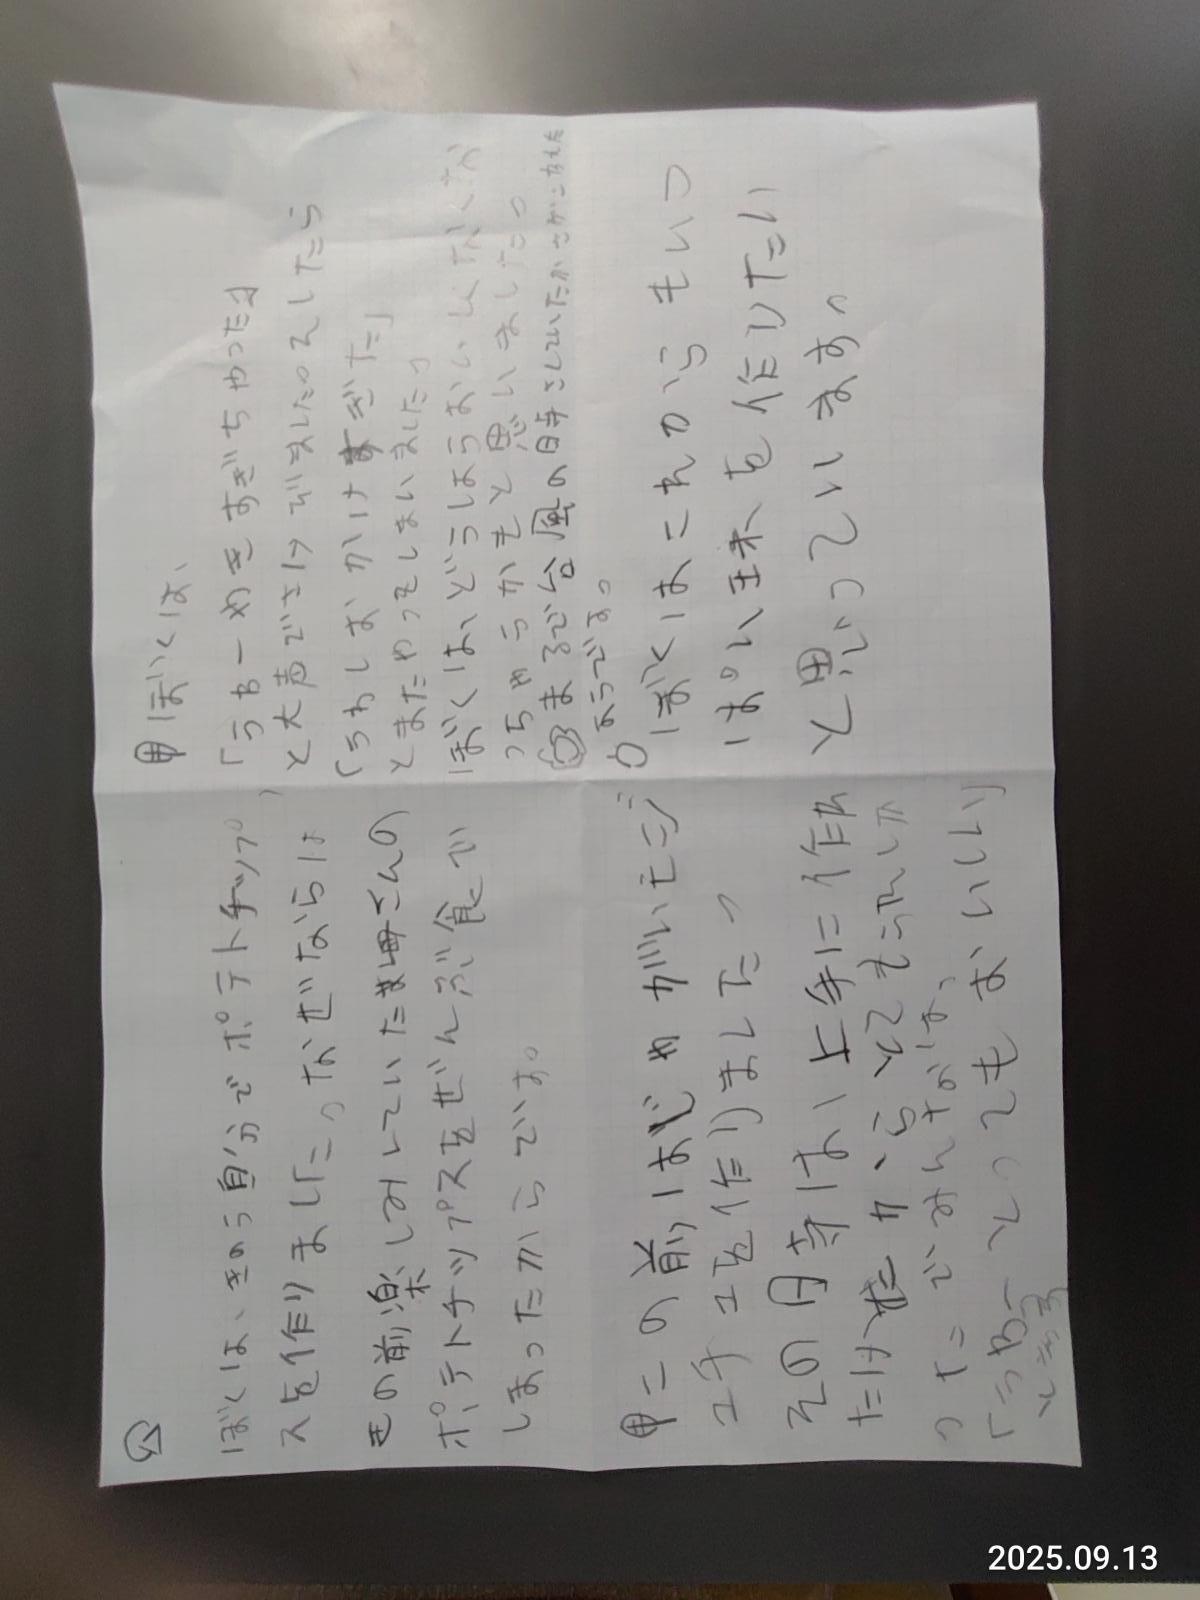 ぼくは、きのう自分でポテトチップ
スを作りました。なぜならは
きの前楽しみしていたお母さんの
ポテトチップスをぜんぶ食べ
しまったからです。
中 ぼくは、
「うわーやきすぎちゃった」
と大声でさけびましたのそしたら
「うわしおかけすぎた」
とまたやってしまいました。
ぼくは、どうしようおいしくなくな
っちゃうかもと思いました。
まるで台風の時さしていたかさがこわれた
ようです。
中この前はじゃがいもニジ
ユチユを作りました。
その時は、上手に作れ
たけた から とてもうれしか
った でみんなは、
「うわー とっても おいしい」
と言う
ぼくはこれからもいっ
ぱい 味を作りたい
と思っています。
2025.09.13